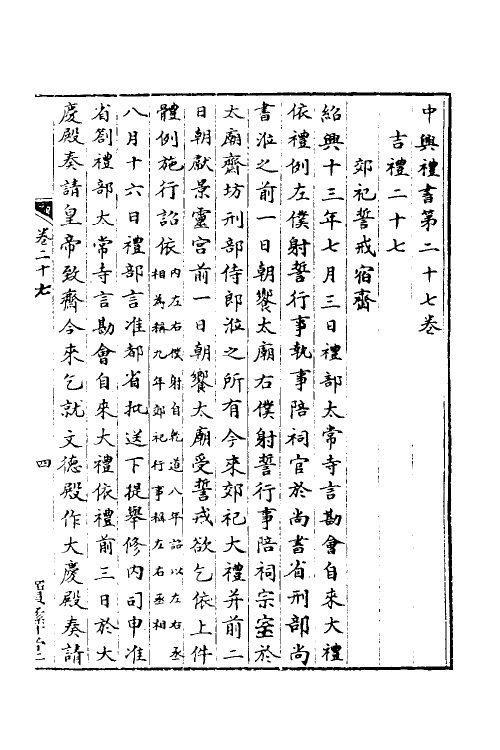 中興禮書第二十七卷
吉禮二十七
郊祀誓戒宿齋
紹興十三年七月三日禮部太常寺言勘會自來大禮
依禮例左僕射誓行事執事陪祠官於尚書省刑部尚
書涖之前一日朝饗太廟右僕射誓行事陪祠宗室於
太廟齋坊刑部侍郎涖之所有今來郊祀大禮并前二
日朝獻景靈宮前一日朝饗太廟受誓戒欲乞依上件
體例施行詔依內左右僕射自乾道八年詔以左右丞
相為稱九年郊祀行事稱左右丞相
八月十六日禮部言准都省批送下提舉修內司申准
省劄禮部太常寺言勘會自來大禮依禮前三日於大
慶殿奏請皇帝致齋今來乞就文德殿作大慶殿奏請
卷二十七
四